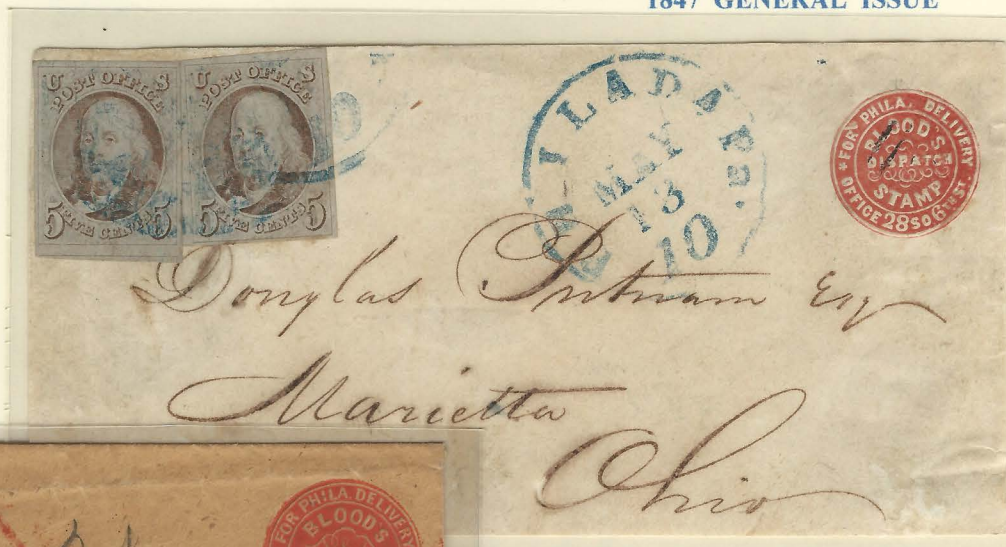 1847 GENERAL ISSUE
U S
POST OFFICE
5 FIVE CENTS 5
U S
POST OFFICE
5 FIVE CENTS 5
10
PHILADA Pa.
MAY
13
10
*FOR PHILA. DELIVERY
BLOOD'S
DISPATCH
STAMP
OFFICE 28 SO 6TH ST.
Douglas Putnam Esq
Marietta
Ohio
FOR PHILA. DELIVERY
BLOOD'S